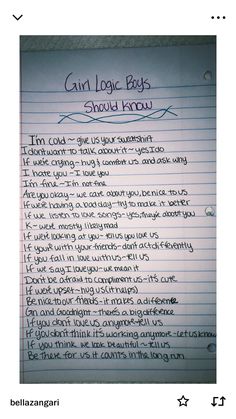 Girl Logic Boys
Should know
I'm cold ~ give us your sweatshirt
I dont want to talk about it ~ yes I do
If we're crying ~ hug & comfort us and ask why
I hate you ~ I love you
I'm fine ~ I'm not fine
Are you okay ~ we care about you, be nice to us
If we're having a bad day ~ try to make it better
If we listen to love songs ~ yes, they're about you
K ~ we're mostly likely mad
If we're looking at you ~ tell us you love us
If your with your friends ~ dont act differently
If you fall in love with us ~ tell us
If we say I love you ~ we mean it
Don't be afraid to compliment us ~ it's cute
If were upset ~ hug us (it helps)
Be nice to our friends ~ it makes a difference
Gn and Goodnight ~ there's a big difference
If you don't love us anymore ~ tell us
If you don't think it's working anymore ~ let us know
If you think we look beautiful ~ tell us
Be there for us it counts in the long run
bellazangari